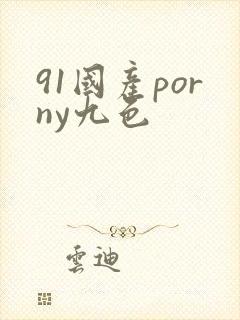 91國產por
ny九色
雲迪